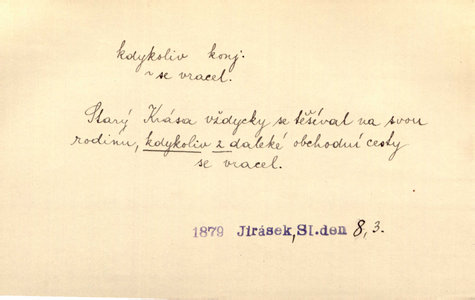 kdykoliv konj.
~ se vracel.
Starý Krása vždycky se těšíval na svou
rodinu, kdykoliv z daleké obchodní cesty
se vracel.
1879 Jirásek, Sl. den 8, 3.